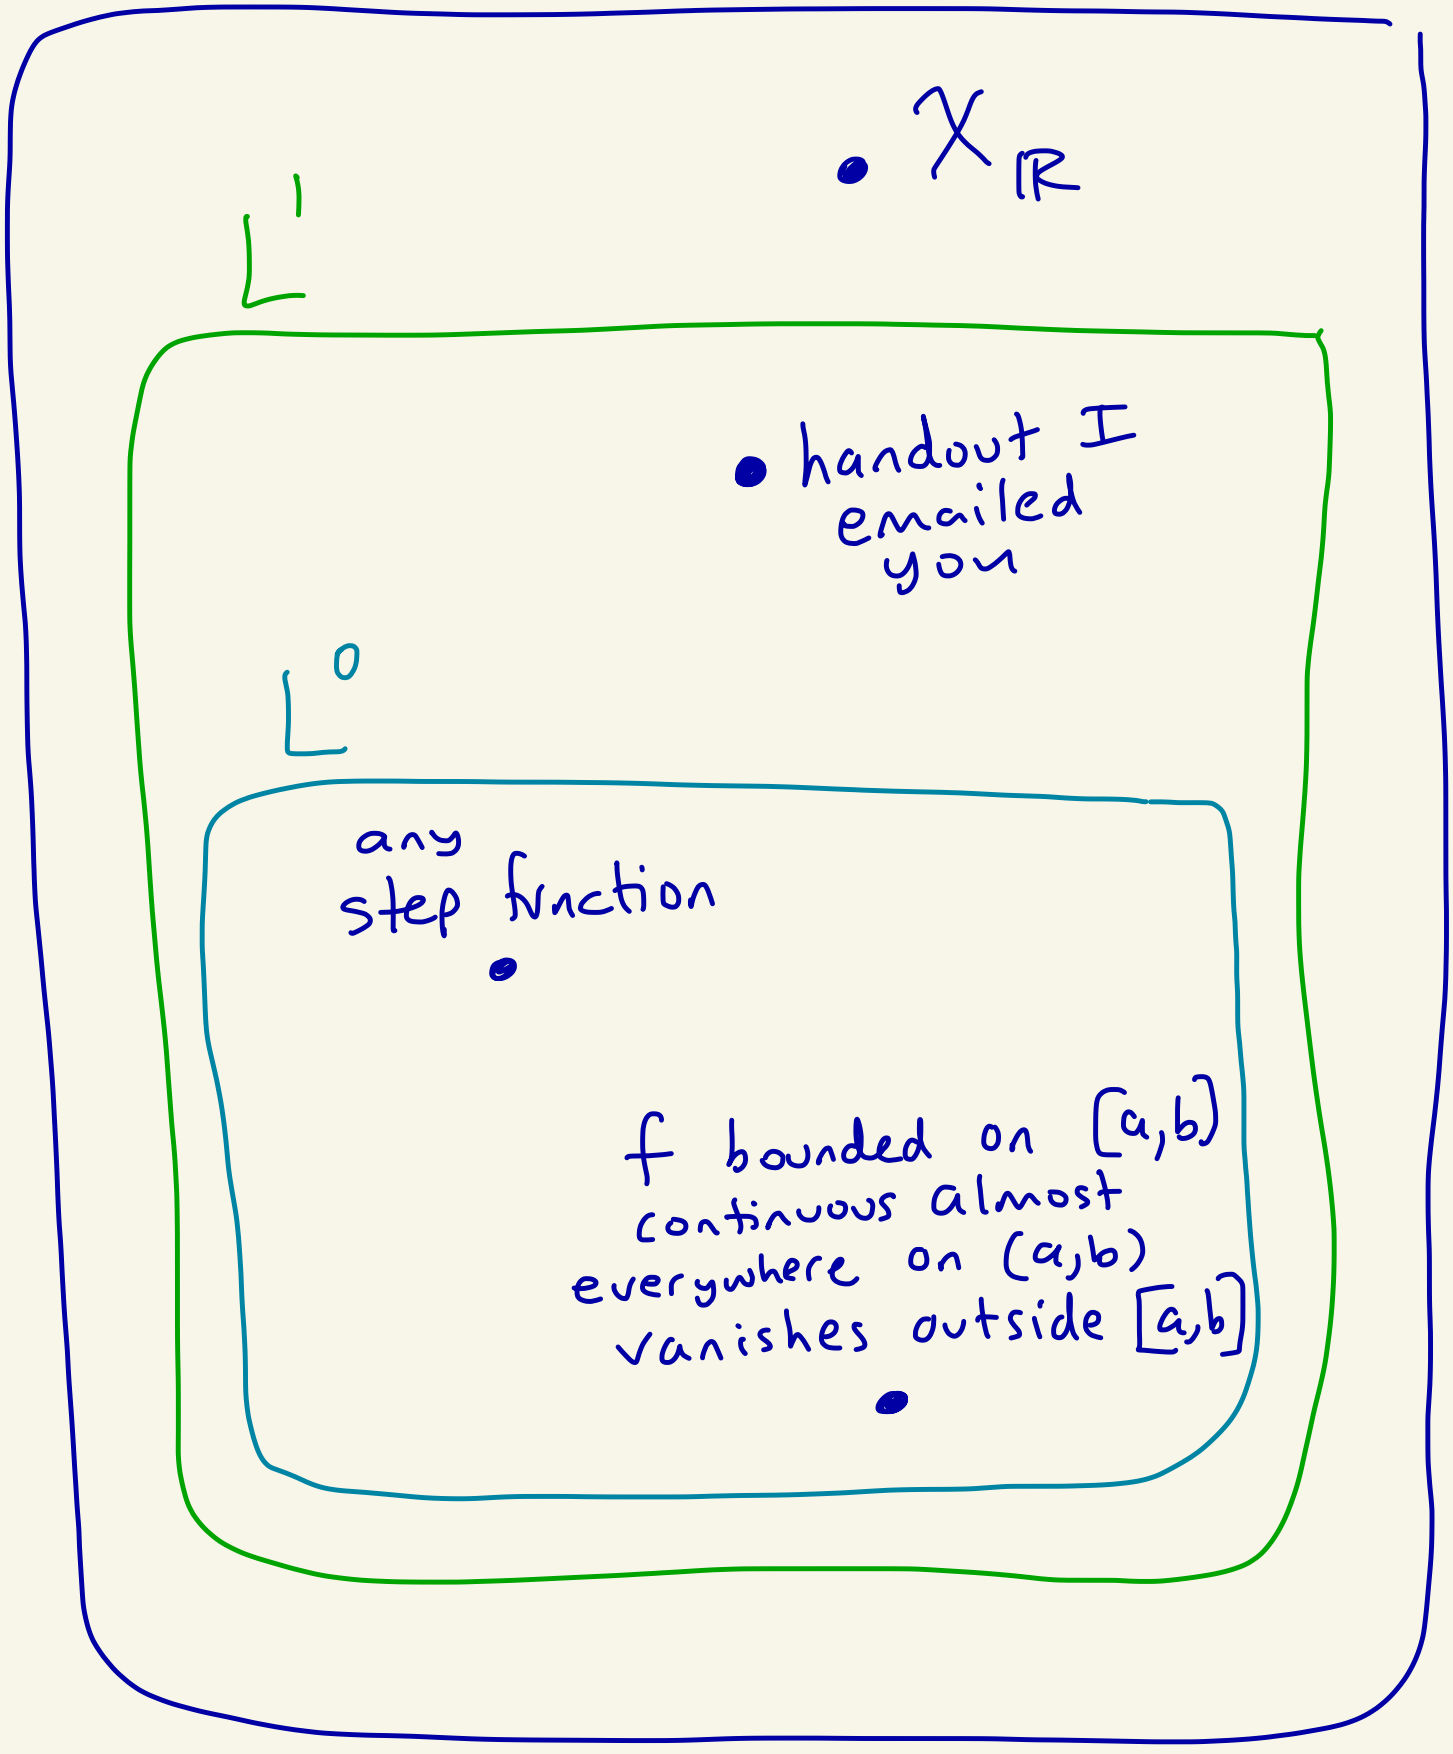 χ_ℝ
L¹
handout I
emailed
you
L⁰
any
step function
f bounded on [a,b]
continuous almost
everywhere on (a,b)
vanishes outside [a,b]